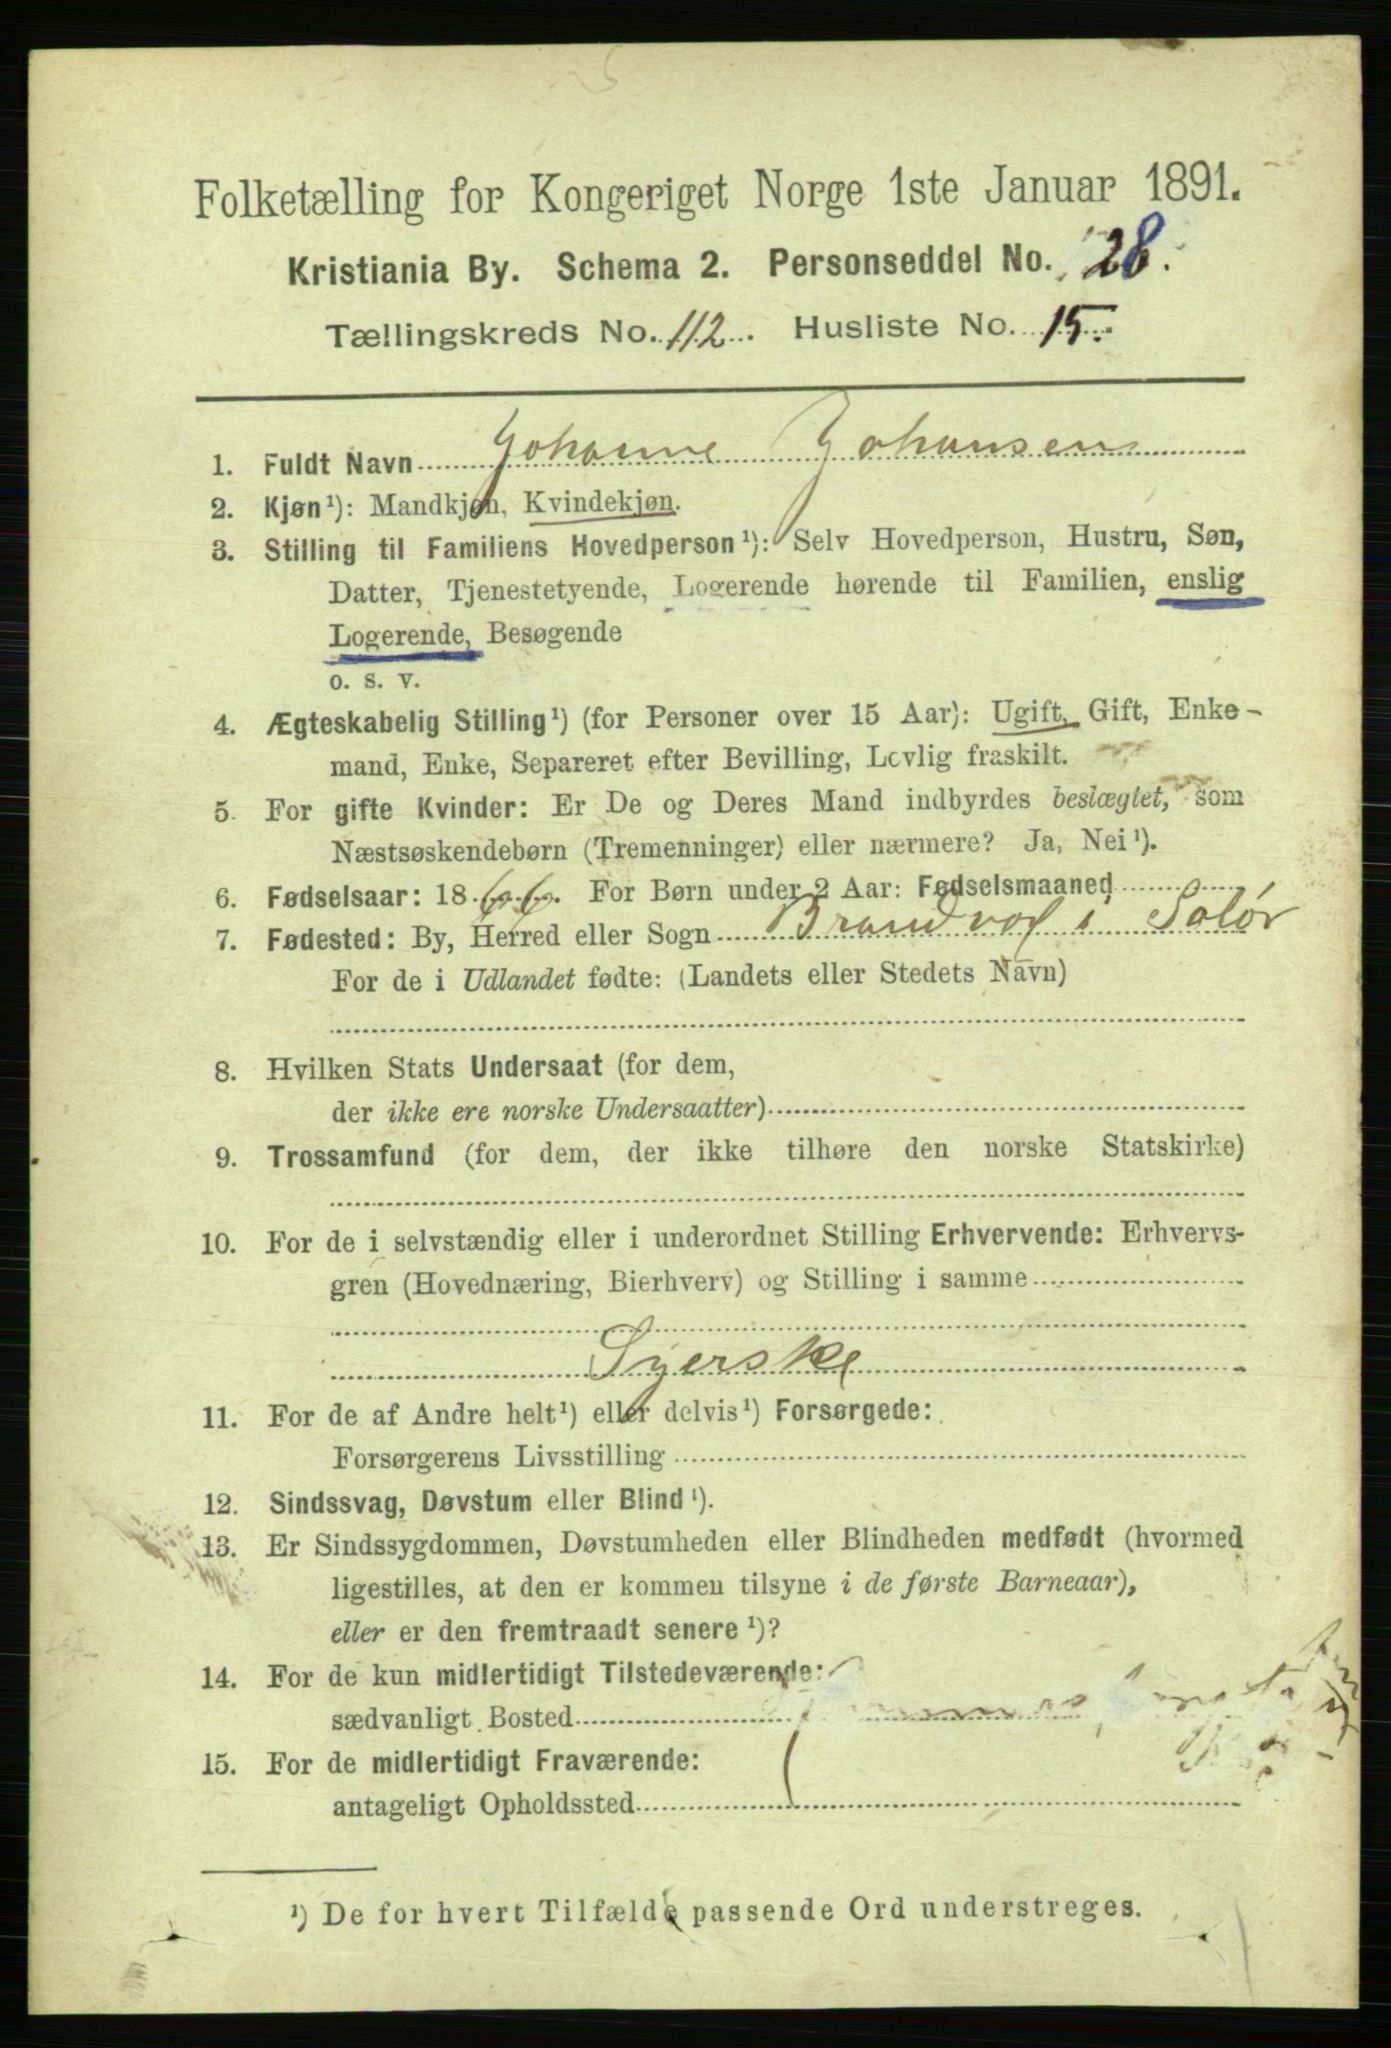 Folketælling for Kongeriget Norge 1ste Januar 1891.
Kristiania By. Schema 2. Personseddel No. 28.
Tællingskreds No. 112. Husliste No. 15.
1. Fuldt Navn Johanne Johansen
2. Kjøn¹): Mandkjøn, Kvindekjøn.
3. Stilling til Familiens Hovedperson¹): Selv Hovedperson, Hustru, Søn,
Datter, Tjenestetyende, Logerende hørende til Familien, enslig
Logerende, Besøgende
o. s. v.
4. Ægteskabelig Stilling¹) (for Personer over 15 Aar): Ugift, Gift, Enke-
mand, Enke, Separeret efter Bevilling, Lovlig fraskilt.
5. For gifte Kvinder: Er De og Deres Mand indbyrdes beslægtet, som
Næstsøskendebørn (Tremenninger) eller nærmere? Ja, Nei¹).
6. Fødselsaar: 1866. For Børn under 2 Aar: Fødselsmaaned
7. Fødested: By, Herred eller Sogn Brandvol i Solør
For de i Udlandet fødte: (Landets eller Stedets Navn)
8. Hvilken Stats Undersaat (for dem,
der ikke ere norske Undersaatter)
9. Trossamfund (for dem, der ikke tilhøre den norske Statskirke)
10. For de i selvstændig eller i underordnet Stilling Erhvervende: Erhvervs-
gren (Hovednæring, Bierhverv) og Stilling i samme
Syerske
11. For de af Andre helt¹) eller delvis¹) Forsørgede:
Forsørgerens Livsstilling
12. Sindssvag, Døvstum eller Blind¹).
13. Er Sindssygdommen, Døvstumheden eller Blindheden medfødt (hvormed
ligestilles, at den er kommen tilsyne i de første Barneaar),
eller er den fremtraadt senere¹)?
14. For de kun midlertidigt Tilstedeværende:
sædvanligt Bosted
15. For de midlertidigt Fraværende:
antageligt Opholdssted
¹) De for hvert Tilfælde passende Ord understreges.